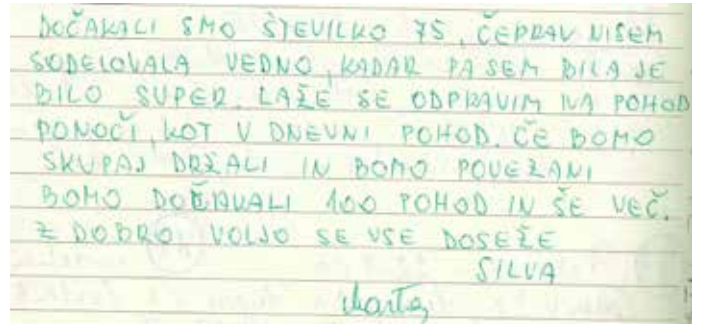 DOČAKALI SMO ŠTEVILKO 75, ČEPRAV NISEM
SODELOVALA VEDNO, KADAR PA SEM BILA JE
BILO SUPER. LAŽE SE ODPRAVIM NA POHOD
PONOČI, KOT V DNEVNI POHOD. ČE BOMO
SKUPAJ DRŽALI IN BOMO POVEZANI
BOMO DOČAKALI 100 POHOD IN ŠE VEČ.
Z DOBRO VOLJO SE VSE DOSEŽE
SILVA
Marta